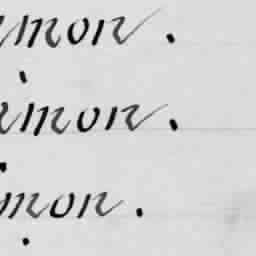 mon.
mon.
mon.